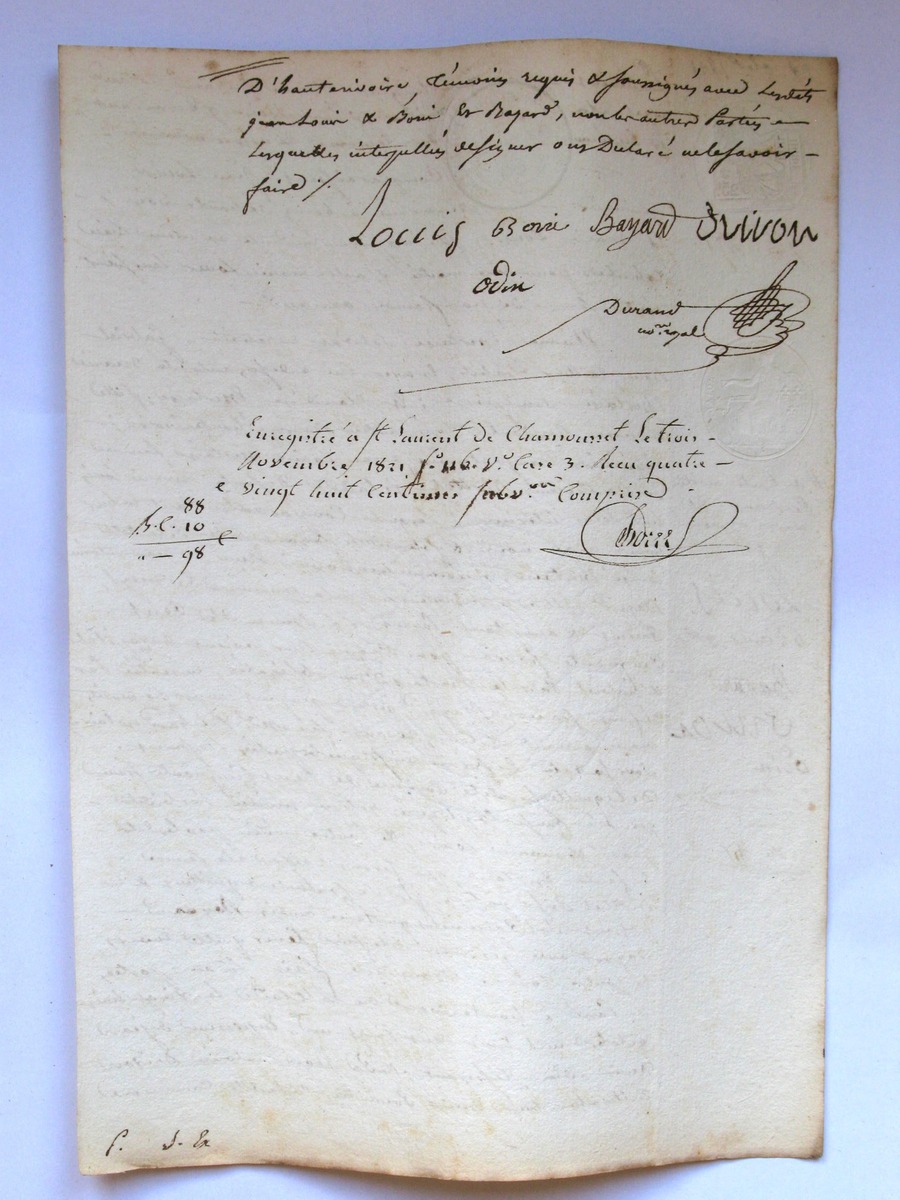 D'hauterivoire, témoins requis & soussignés avec Lesdits
jean Louis & Borie Et Bayard, non les autres Parties
Lesquelles interpellées de signer ont Déclaré ne le Savoir
faire ./.
Louis Borie Bayard
odin
Durand
no.re royal
Enregistré a St Laurent de Chamousset Le trois
Novembre 1821 fo. 116. Vo. Case 3. Reçu quatre
vingt huit Centimes subv.on Comprise
88
10
98